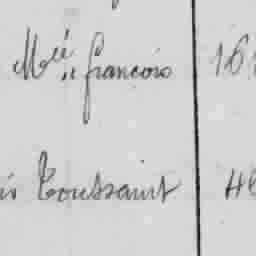 Mie francois 16
is Toussaint 46